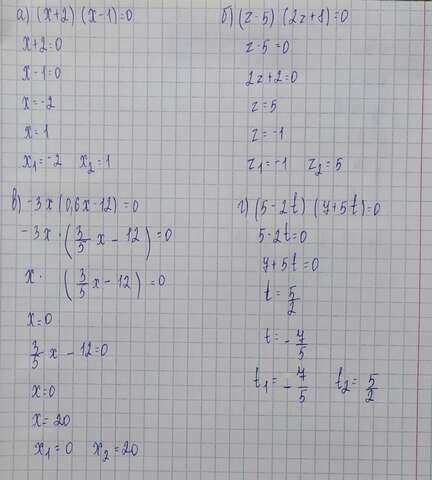 а) (x+2) (x-1)=0
x+2=0
x-1=0
x=-2
x=1
x₁=-2 x₂=1
б) (z-5) (2z+8)=0
z-5=0
2z+2=0
z=5
z=-1
z₁=-1 z₂=5
в) -3x (0,6x-12)=0
-3x·(3/5 x - 12)=0
x· (3/5 x - 12)=0
x=0
3/5 x - 12=0
x=0
x=20
x₁=0 x₂=20
г) (5-2t) (7+5t)=0
5-2t=0
7+5t=0
t=5/2
t=-7/5
t₁=-7/5 t₂=5/2